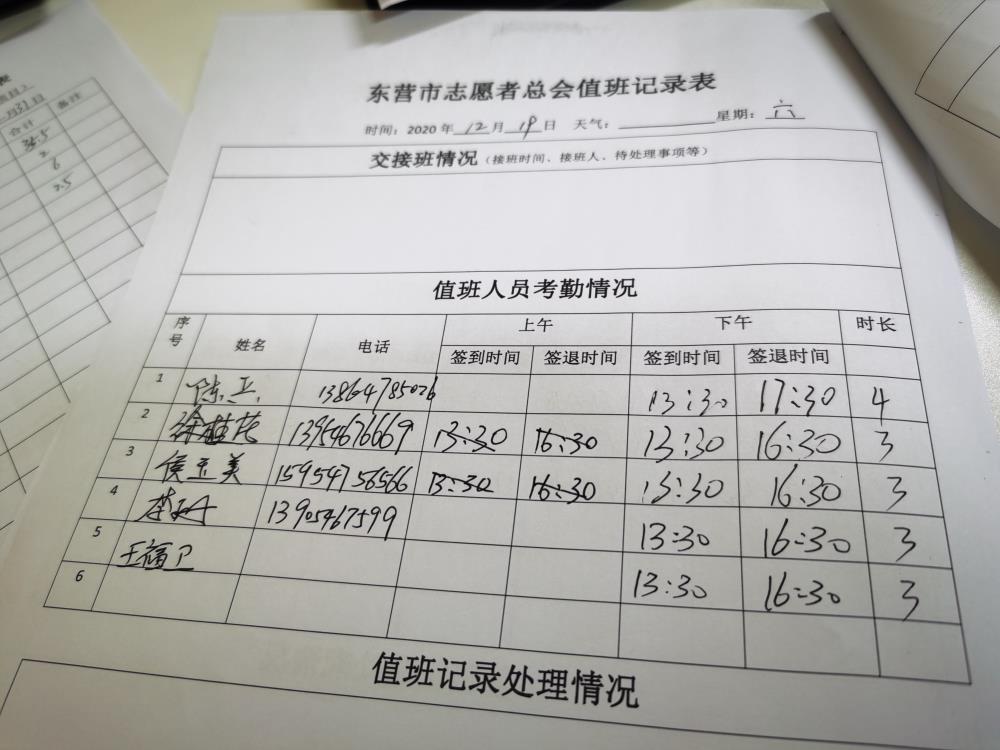 东营市志愿者总会值班记录表
时间：2020年 12 月 19 日 天气： 星期：六
交接班情况（接班时间、接班人、待处理事项等）
值班人员考勤情况
序号 姓名 电话 上午 下午 时长
签到时间 签退时间 签到时间 签退时间
1 陈 13864785026 13:30 17:30 4
2 徐 13954676669 13:30 16:30 13:30 16:30 3
3 侯玉美 15954756566 13:30 16:30 13:30 16:30 3
4 李 13905467599 13:30 16:30 3
5 王福卫 13:30 16:30 3
6
值班记录处理情况
表
月31日 备注
合计
36.5
2
6
2.5